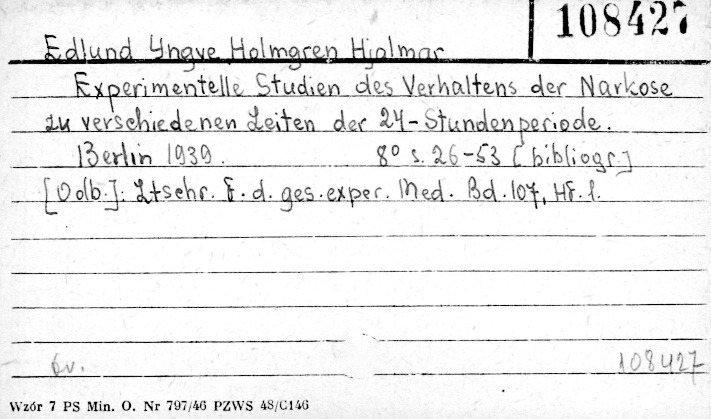 108427
Edlund Yngve Holmgren Hjalmar
Experimentelle Studien des Verhaltens der Narkose
zu verschiedenen Zeiten der 24-Stundenperiode.
Berlin 1939. 8° s. 26-53 [bibliogr.]
[Odb.]: Ztschr. f. d. ges. exper. Med. Bd. 107, Hf. 1.
108427
Wzór 7 PS Min. O. Nr 797/46 PZWS 48/C146